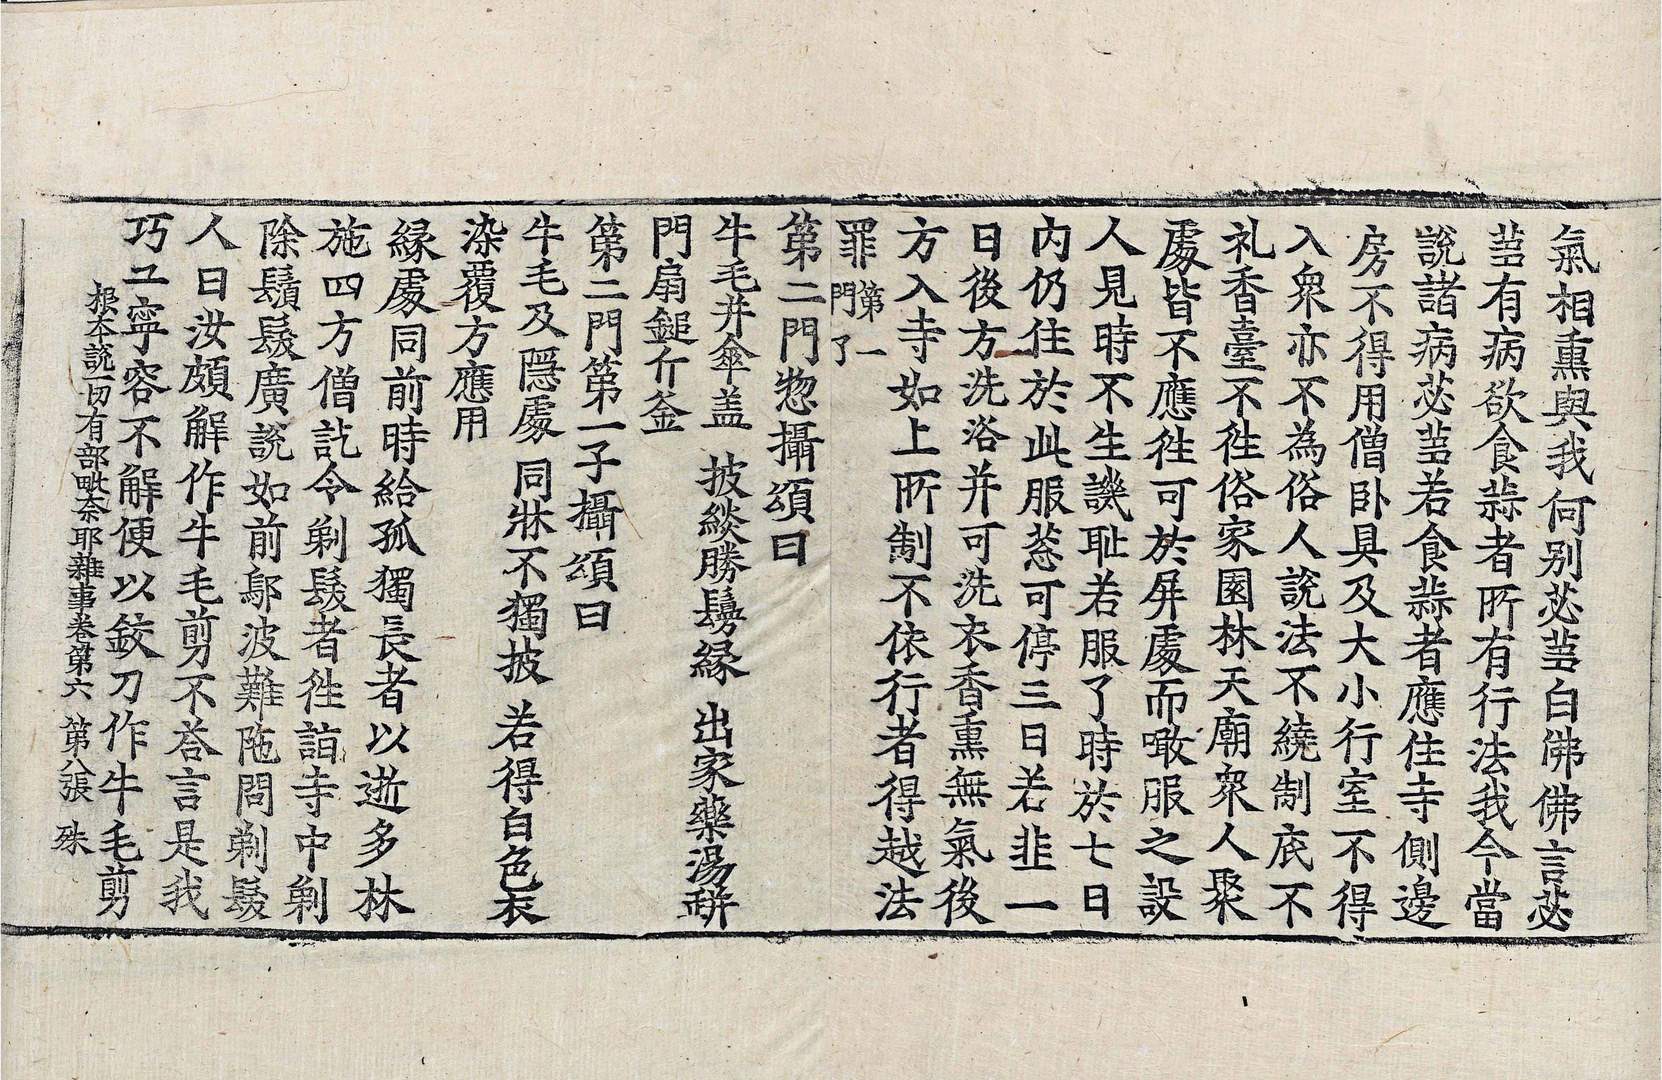 氣相熏與我何別苾芻白佛佛言苾
芻有病欲食蒜者所有行法我今當
說諸病苾芻若食蒜者應住寺側邊
房不得用僧卧具及大小行室不得
入衆亦不為俗人說法不繞制底不
礼香臺不徃俗家園林天廟衆人聚
處皆不應徃可於屏處而噉服之設
人見時不生譏耻若服了時於七日
內仍住於此服葱可停三日若韭一
日後方洗浴并可洗衣香熏無氣後
方入寺如上所制不依行者得越法
罪 第一門了
第二門惣攝頌曰
牛毛并傘盖 披緂勝鬘緣 出家藥湯瓶
門扇鎚斤釜
第二門第一子攝頌曰
牛毛及隱處 同牀不獨披 若得白色衣
染覆方應用
緣處同前時給孤獨長者以逝多林
施四方僧訖令剃髮者徃詣寺中剃
除鬚髮廣說如前鄔波難陁問剃髮
人曰汝頗解作牛毛剪不荅言是我
巧工寧容不解便以鉸刀作牛毛剪
根本說一切有部毗奈耶雜事卷第六 第八張 殊